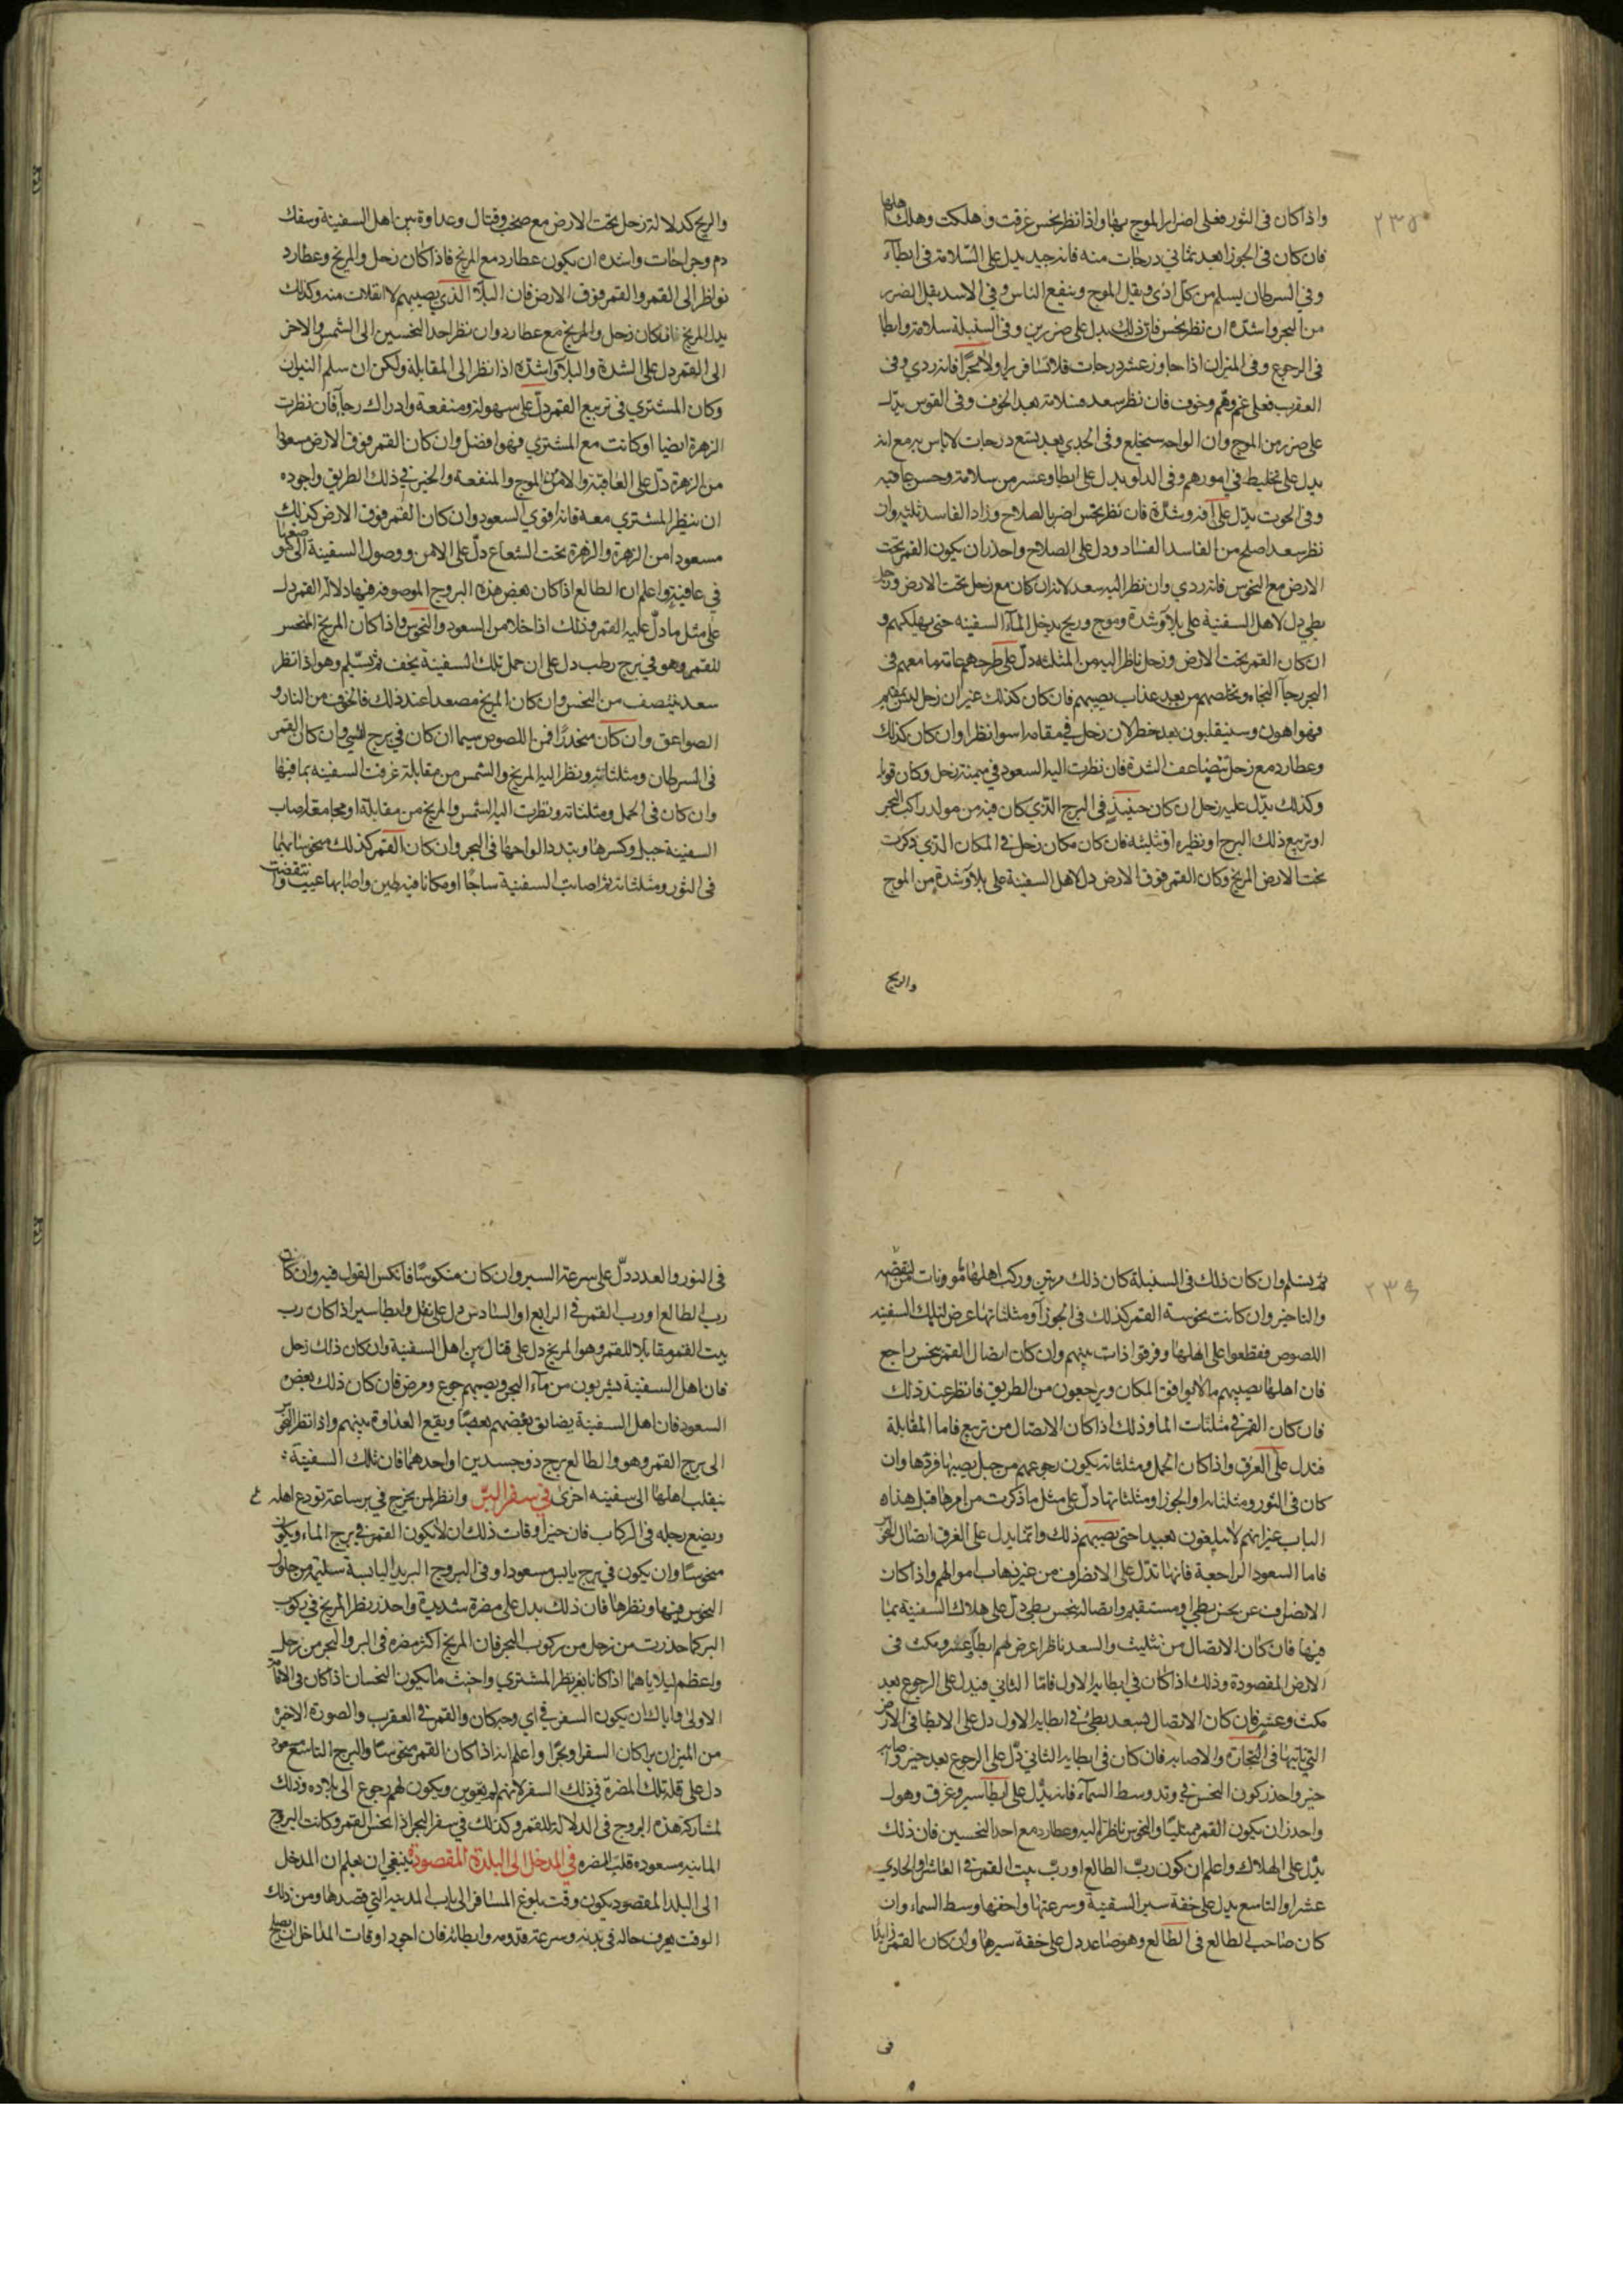 ٢٣٥
واذا كان فى الثور فعلى اضرار الموج بها واذا نظر نحس غرقت وهلكت وهلك اهلها
فان كان فى الجوزا بعد ثماني درجات منه فانه جيد يدل على السّلامة فى ابطآء
وفى السرطان يسلم من كل اذى ويقل الموج وينفع الناس وفى الاسد يقل الضرر
من البحر واشدّه ان نظر نحس فان ذلك يدل على ضررين وفى السنبلة سلامة وابطا
فى الرجوع وفى الميزان اذا جاوز عشر درجات فلا تسافر برا ولا بحرًا فانه ردي وفى
العقرب فعلى غم وهم وخوف فان نظر سعد فسلامة بعد الخوف وفى القوس يدّل
على ضرر من الموج وان الواحه ستخلع وفى الجدي بعد تسع درجات لاباس به مع انه
يدل على تخليط في امورهم وفى الدلو يدل على ابطا وعشر من سلامة وحسن عاقبه
وفى الحوت يدّل على آفه وشدّة فان نظر نحس اضر بالصلاح وزاد الفاسد ثلثيه وان
نظر سعد اصلح من الفاسد الفساد ودل على الصلاح واحذر ان يكون القمر تحت
الارض مع النحوس فانه ردي وان نظر اليه سعد لانه ان كان مع زحل تحت الارض وزحل
بطي دل لاهل السفينة على بلآء وشدة وموج وريح يدخل المآء السفينه حتى يهلكهم و
ان كان القمر تحت الارض وزحل ناظر اليه من المثلثه دلّ على طرحهم عامة ما معهم فى
البحر رجآ النجاه وتخلصهم من بعد عذاب يصيبهم فان كان كذلك غير ان زحل ليس بمقيم
فهو اهون وسينقلبون بعد خطر لان زحل في مقامه اسوا نظرا وان كان كذلك
وعطارد مع زحل تتضاعف الشدة فان نظرت اليه السعود في ميمنة زحل وكان قويا
وكذلك يدّل عليه زحل ان كان حينئذ في البرج الذي كان فيه من مولد راكب البحر
او تربيع ذلك البرج او نظيره او تثليثه فان كان مكان زحل في المكان الذي ذكرت
تحت الارض المريخ وكان القمر فوق الارض دل لاهل السفينة على بلآء وشدة من الموج
والريح
والريح كدلالة زحل تحت الارض مع صخب وقتال وعداوة بين اهل السفينة وسفك
دم وجراحات واشده ان يكون عطارد مع المريخ فاذا كان زحل والمريخ وعطارد
نواظر الى القمر والقمر فوق الارض فان البلآء الذي يصيبهم لا انفلات منه وكذلك
يدل المريخ فان كان زحل والمريخ مع عطارد وان نظر احد النحسين الى الشمس والاخر
الى القمر دل على الشدة والبلآء واشدّه اذا نظر الى المقابلة ولكن ان سلم النيران
وكان المشتري في تربيع القمر دلّ على سهولة ومنفعة وادراك رجآء فان نظرت
الزهرة ايضا او كانت مع المشتري فهو افضل وان كان القمر فوق الارض مسعودا
من الزهرة دلّ على العافية والامن من الموج والمنفعة والخير في ذلك الطريق واجوده
ان ينظر المشتري معه فانه اقوي السعود وان كان القمر فوق الارض كذلك
مسعودا من الزهرة والزهرة تحت الشعاع دلّ على الامن ووصول السفينة الى
في عافية واعلم ان الطالع اذا كان بعض هذه البروج الموصوفه فيها دلالة القمر دل
على مثل ما دلّ عليه القمر وذلك اذا خلا من السعود والنحوس واذا كان المريخ المنحس
للقمر وهو في برج رطب دل على ان حمل تلك السفينة يخف ثم يسّلم وهو اذا نظر
سعد ينتصف من النحس وان كان المريخ مصعدا عند ذلك فالخوف من النار و
الصواعق وان كان منحدرًا فمن اللصوص سيما ان كان في برج انسي وان كان القمر
فى السرطان ومثلثاته ونظر اليه المريخ والشمس من مقابلة غرقت السفينه بما فيها
وان كان فى الحمل ومثلثاته ونظرت اليه الشمس والمريخ من مقابلة او مجامعة اصاب
السفينة جبل وكسرها وتبدد الواحها فى البحر وان كان القمر كذلك منحوسا
فى الثور ومثلثاته اصابت السفينة ساجًا او مكانا فيه طين واصابها عيب وانتقضت
٢٣٦
ثم يسلم وان كان ذلك فى السنبلة كان ذلك مرتين وركب اهلها
والتاخير وان كانت نحوسة القمر كذلك فى الجوزآ ومثلثاتها عرض لتلك السفينه
اللصوص فقطعوا على اهلها وفرقوا ذات بينهم وان كان اتصال القمر بنحس راجع
فان اهلها يصيبهم ما لا يوافق المكان ويرجعون من الطريق فانظر عند ذلك
فان كان القمر في مثلثات الما وذلك اذا كان الاتصال من تربيع فاما المقابلة
فتدل على الغرق واذا كان الحمل ومثلثاته يكون رجوعهم من جبل يصيبها فردّها وان
كان فى الثور ومثلثاته او الجوزا ومثلثاتها دلّ على مثل ما ذكرت من امرها قبل هذه
الباب غير انهم لا يبلغون بعيدا حتى يصيبهم ذلك وانما يدل على الغرق اتصال
فاما السعود الراجعة فانها تدّل على الانصراف من غير ذهاب اموالهم واذا كان
الانصراف عن نحس بطي او مستقيم واتصاله بنحس بطي دلّ على هلاك السفينة بما
فيها فان كان الاتصال من تثليث والسعد ناظر اعرض لهم ابطآء وعسر ومكث فى
الارض المقصودة وذلك اذا كان في ابطايه الاول فامّا الثاني فيدل على الرجوع بعد
مكث وعشر فان كان الاتصال بسعد بطي في ابطايه الاول دل على الابطا فى الارض
التي ياتيها فى التجارة والاصابه فان كان فى ابطايه الثاني دّل على الرجوع بعد خير واصابه
خير واحذر كون النحس في وتد وسط السمآء فانه يدّل على ابطآ سير وغرق وهول
واحذر ان يكون القمر ممتليًا والنحوس ناظره اليه وعطارد مع احد النحسين فان ذلك
يدّل على الهلاك واعلم ان كون ربّ الطالع او ربّ بيت القمر في العاشر او الحادي
عشر او التاسع يدل على خفة سير السفينة وسرعتها واخفها وسط السماء وان
كان صاحب الطالع فى الطالع وهو صاعد دل على خفة سيرها وان كان القمر زايدًا
فى
فى النور والعدد دلّ على سرعة السير وان كان منكوسًا فانكس القول فيه وان كان
رب الطالع او رب القمر في الرابع او السادس دل على ثقل وابطا سير اذا كان رب
بيت القمر مقابلا للقمر وهو المريخ دل على قتال بين اهل السفينة وان كان ذلك زحل
فان اهل السفينة يشربون من مآء البحر ويصيبهم جوع ومرض فان كان ذلك بعض
السعود فان اهل السفينة يضايق بعضهم بعضًا ويقع العداوة بينهم واذا نظر
الى برج القمر وهو والطالع برج ذو جسدين او احدهما فان تلك السفينة
ينقلب اهلها الى سفينه اخرى في سفر البرّ وانظر لمن يخرج في بر ساعة تودع اهله
ويضع رجله فى الركاب فان خير اوقات ذلك ان لا يكون القمر في برج الماء ويكون
منحوسًا وان يكون في برج يابس مسعودا وفى البروج البرية اليابسة سليمة من حلول
النحوس فيها ونظرها فان ذلك يدل على مضرة شديدة واحذر نظر المريخ في ركوب
البر كما حذرت من زحل من ركوب البحر فان المريخ اكثر مضره فى البر والبحر من زحل
واعظم لبلاياهما اذا كانا بغير نظر المشتري واخبث ما يكون النحسان اذا كان فى
الاولى واياك ان يكون السفر في اي وجه كان والقمر في العقرب والصورة الاخيره
من الميزان برا كان السفر او بحرًا واعلم انه اذا كان القمر منحوسًا والبرج التاسع
دل على قلة تلك المضرة في ذلك السفر لانهم يعوين ويكون لهم رجوع الى بلاده وذلك
لمشاركة هذه البروج فى الدلالة للقمر وكذلك في سفر البحر اذا نحس القمر وكانت البروج
المائيه مسعوده قلت المضره في المدخل الى البلدة المقصودة ينبغي ان يعلم ان المدخل
الى البلد المقصود يكون وقت بلوغ المسافر الى باب المدينه التي قصدها ومن ذلك
الوقت يعرف حاله في بدنه وسرعة قدومه وابطائه فان اجود اوقات المداخل ان